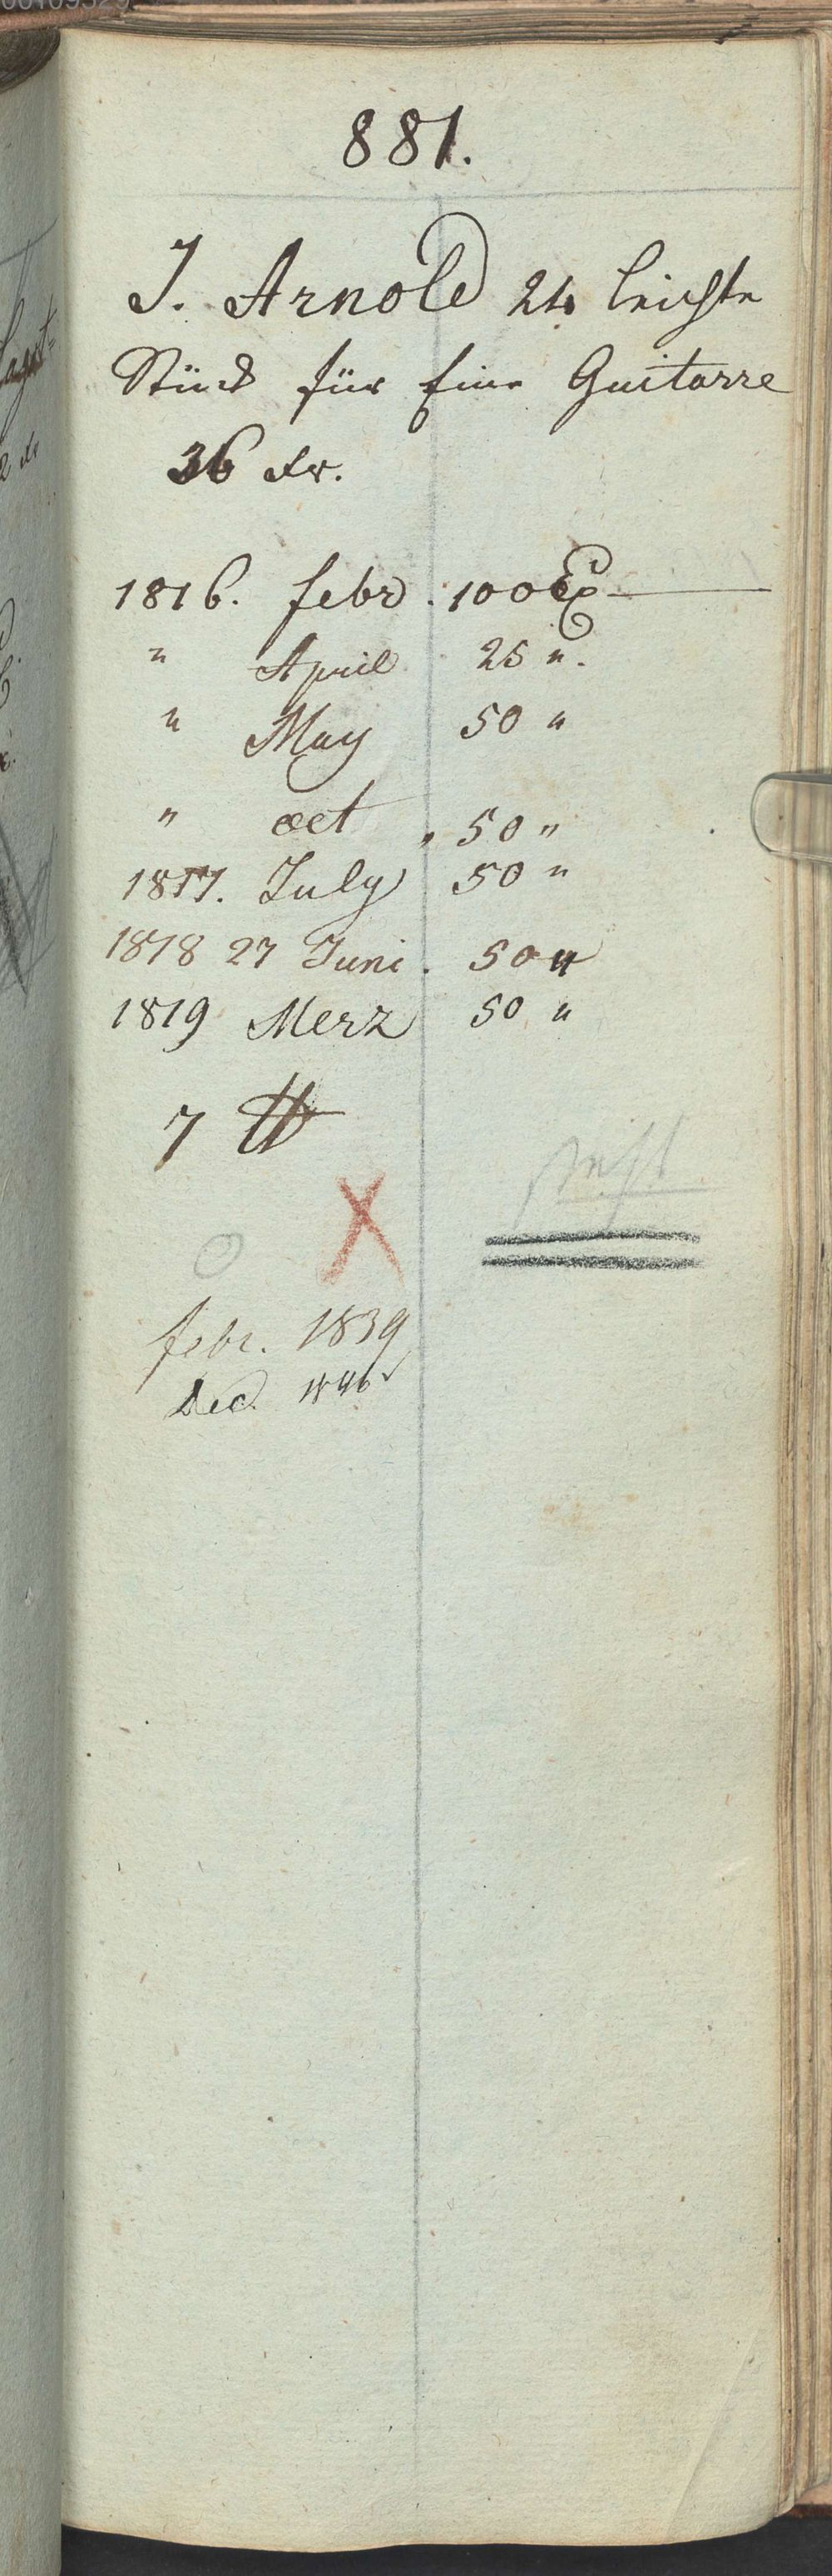 881.
J. Arnold 24 leichte
Stück für Eine Guitarre
36 xr.
1816. febr. 100 Ex
" April 25 ".
" May 50 "
" oct " 50 "
1817. July 50 "
1818 27 Juni. 50 "
1819 Merz 50 "
7 ℔
X
febr. 1839
Dec. 1846